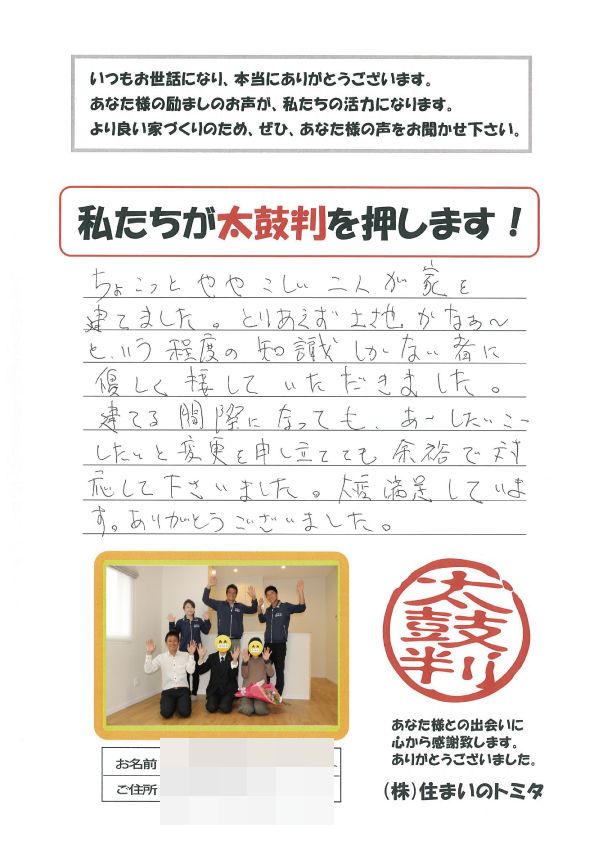 いつもお世話になり、本当にありがとうございます。
あなた様の励ましのお声が、私たちの活力になります。
より良い家づくりのため、ぜひ、あなた様の声をお聞かせ下さい。
私たちが太鼓判を押します！
ちょこっとややこしい二人が家を
建てました。とりあえず土地がなぁ〜
という程度の知識しかない者に
優しく接していただきました。
建てる間際になっても、あーしたいこー
したいと変更を申し立てても余裕で対
応して下さいました。大変満足していま
す。ありがとうございました。
太鼓判
あなた様との出会いに
心から感謝致します。
ありがとうございました。
お名前
ご住所
(株)住まいのトミタ